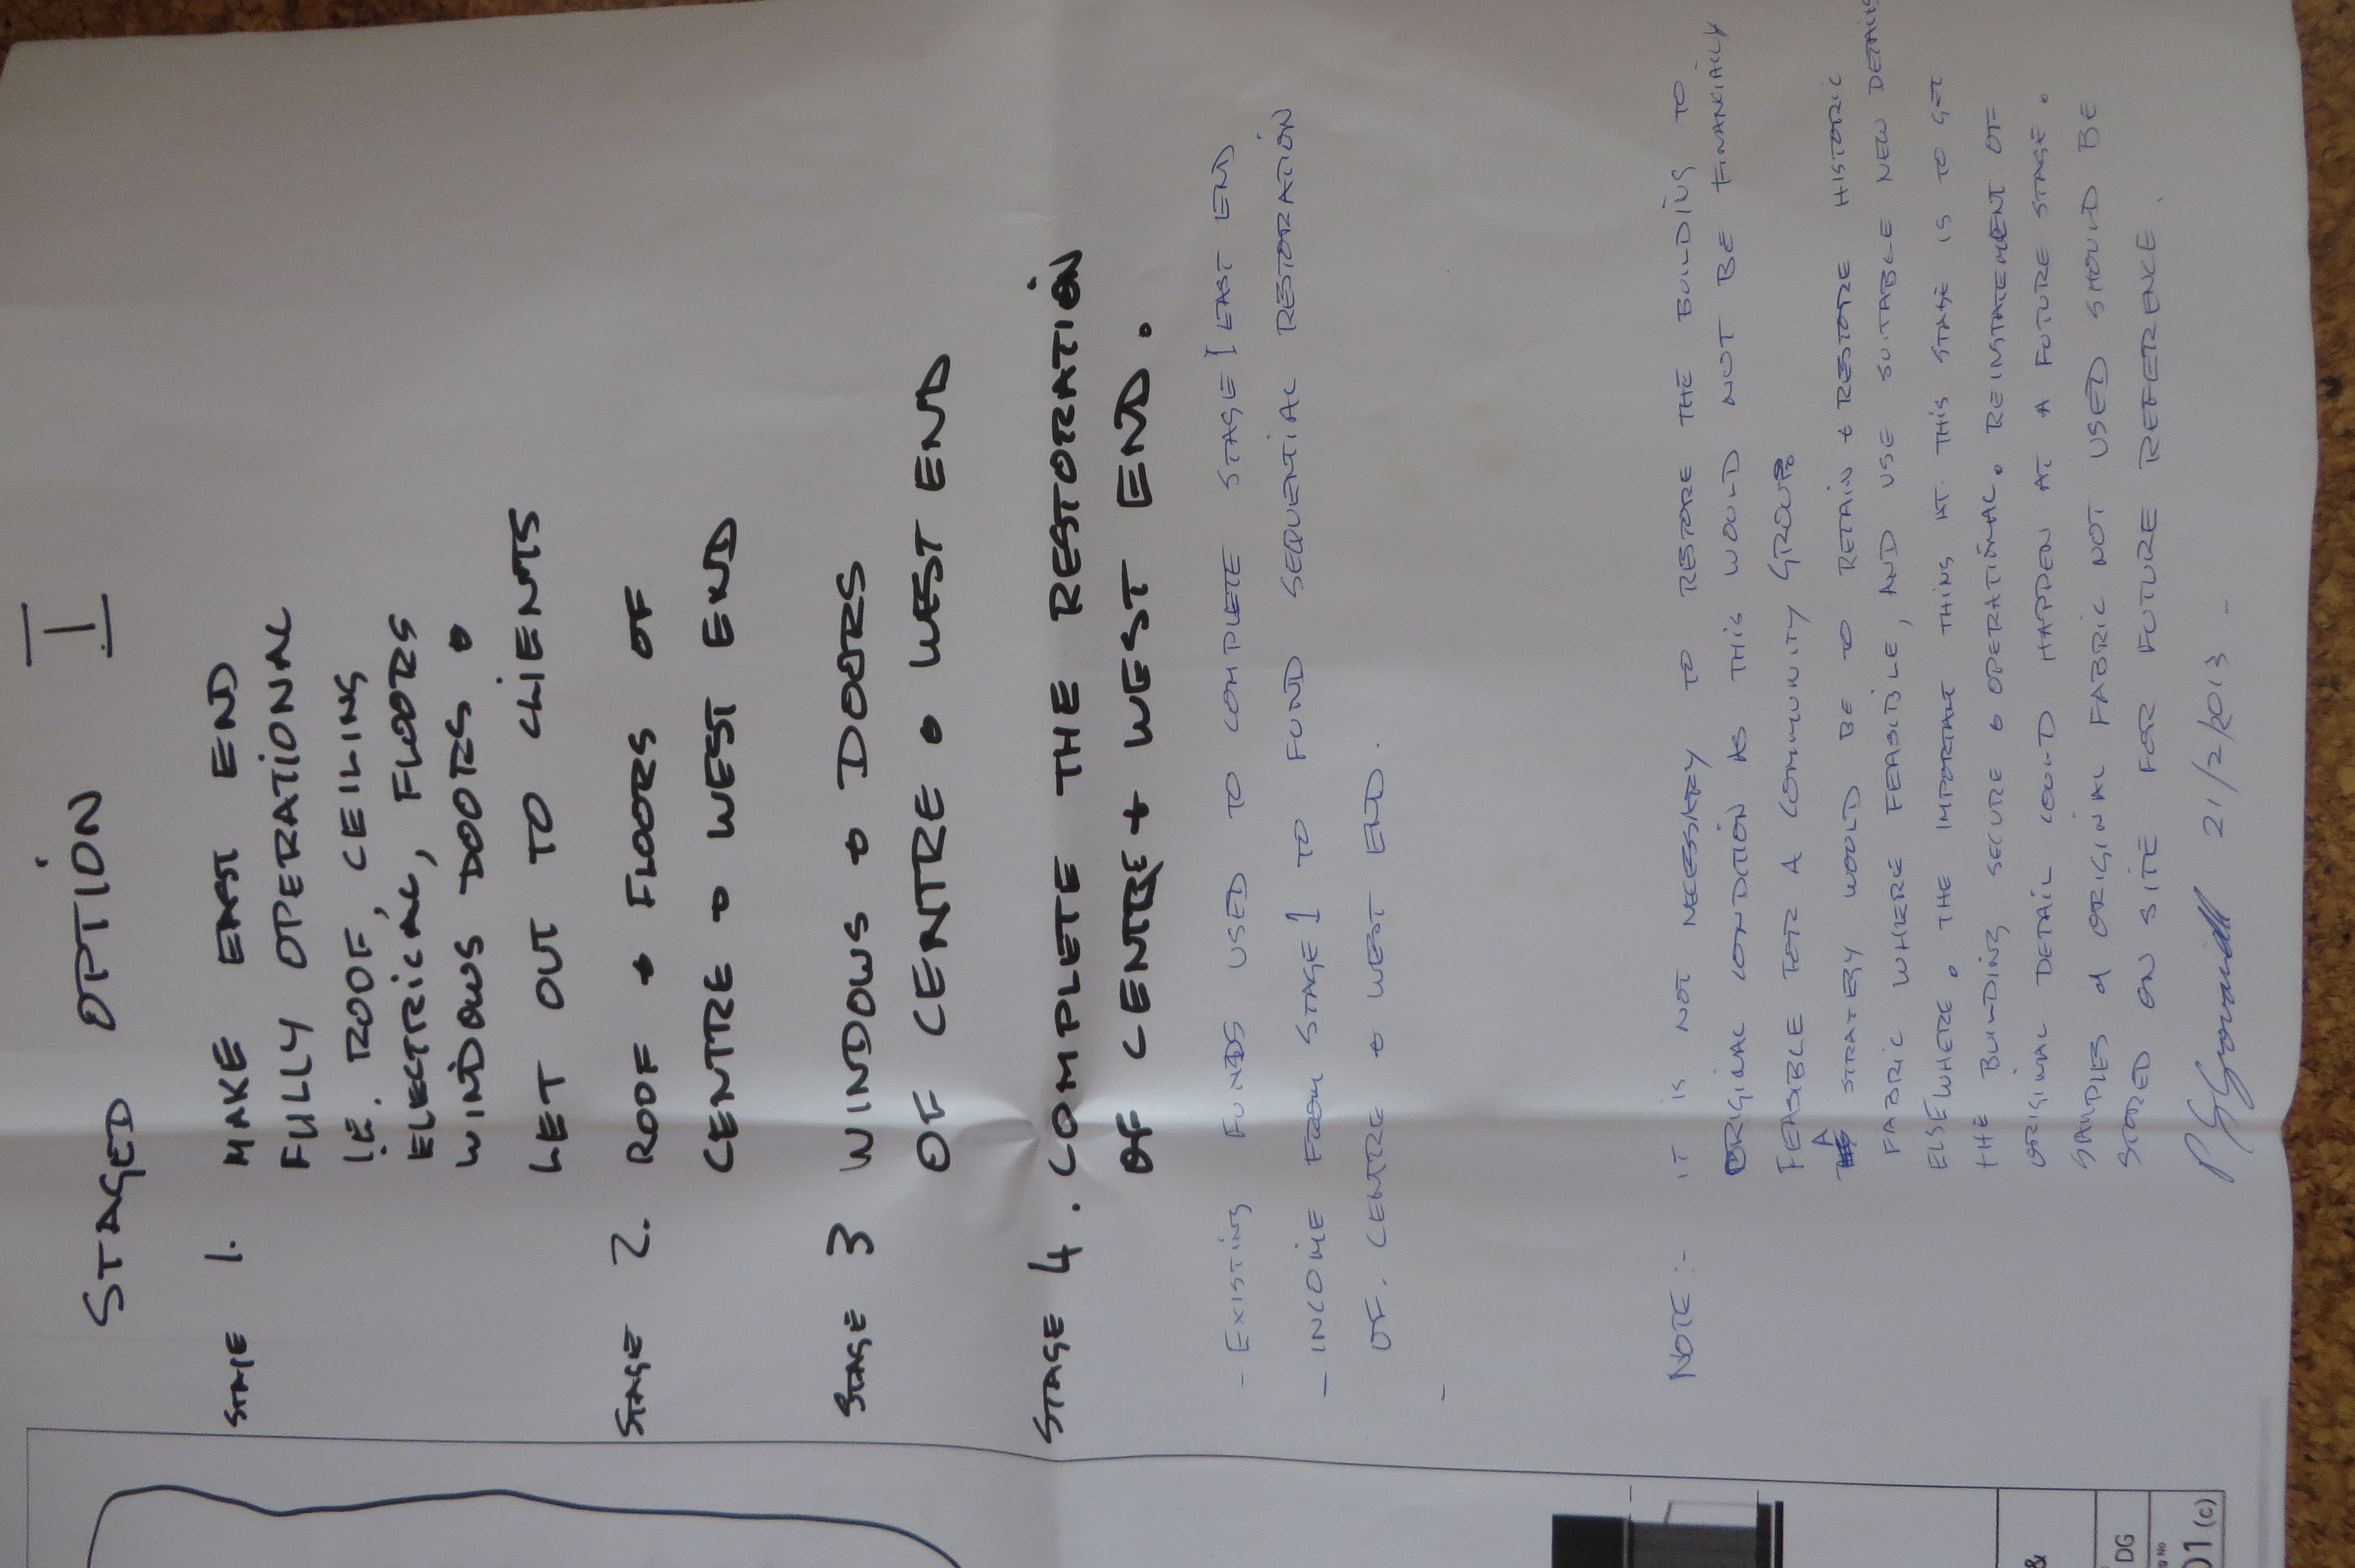 STAGED OPTION I
STAGE 1. MAKE EAST END
FULLY OPERATIONAL
I.E. ROOF, CEILING
ELECTRICAL, FLOORS
WINDOWS DOORS.
LET OUT TO CLIENTS
STAGE 2. ROOF & FLOORS OF
CENTRE & WEST END
STAGE 3 WINDOWS & DOORS
OF CENTRE & WEST END
STAGE 4. COMPLETE THE RESTORATION
OF CENTRE + WEST END.
- EXISTING FUNDS USED TO COMPLETE STAGE 1 EAST END
- INCOME FROM STAGE 1 TO FUND SEQUENTIAL RESTORATION
OF. CENTRE & WEST END.
-
NOTE:- IT IS NOT NECESSARY TO RESTORE THE BUILDING TO
ORIGINAL CONDITION AS THIS WOULD NOT BE FINANCIALLY
FEASABLE FOR A COMMUNITY GROUP.
A STRATERY WOULD BE TO RETAIN & RESTORE HISTORIC
FABRIC WHERE FEASIBLE, AND USE SUITABLE NEW DETAILS
ELSEWHERE. THE IMPORTANT THING AT. THIS STAGE IS TO GET
THE BUILDING SECURE & OPERATIONAL. REINSTATEMENT OF
ORIGINAL DETAIL COULD HAPPEN AT A FUTURE STAGE.
SAMPLES of ORIGINAL FABRIC NOT USED SHOULD BE
STORED ON SITE FOR FUTURE REFERENCE.
21/2/2013 -
&
DG
g No
01 (c)